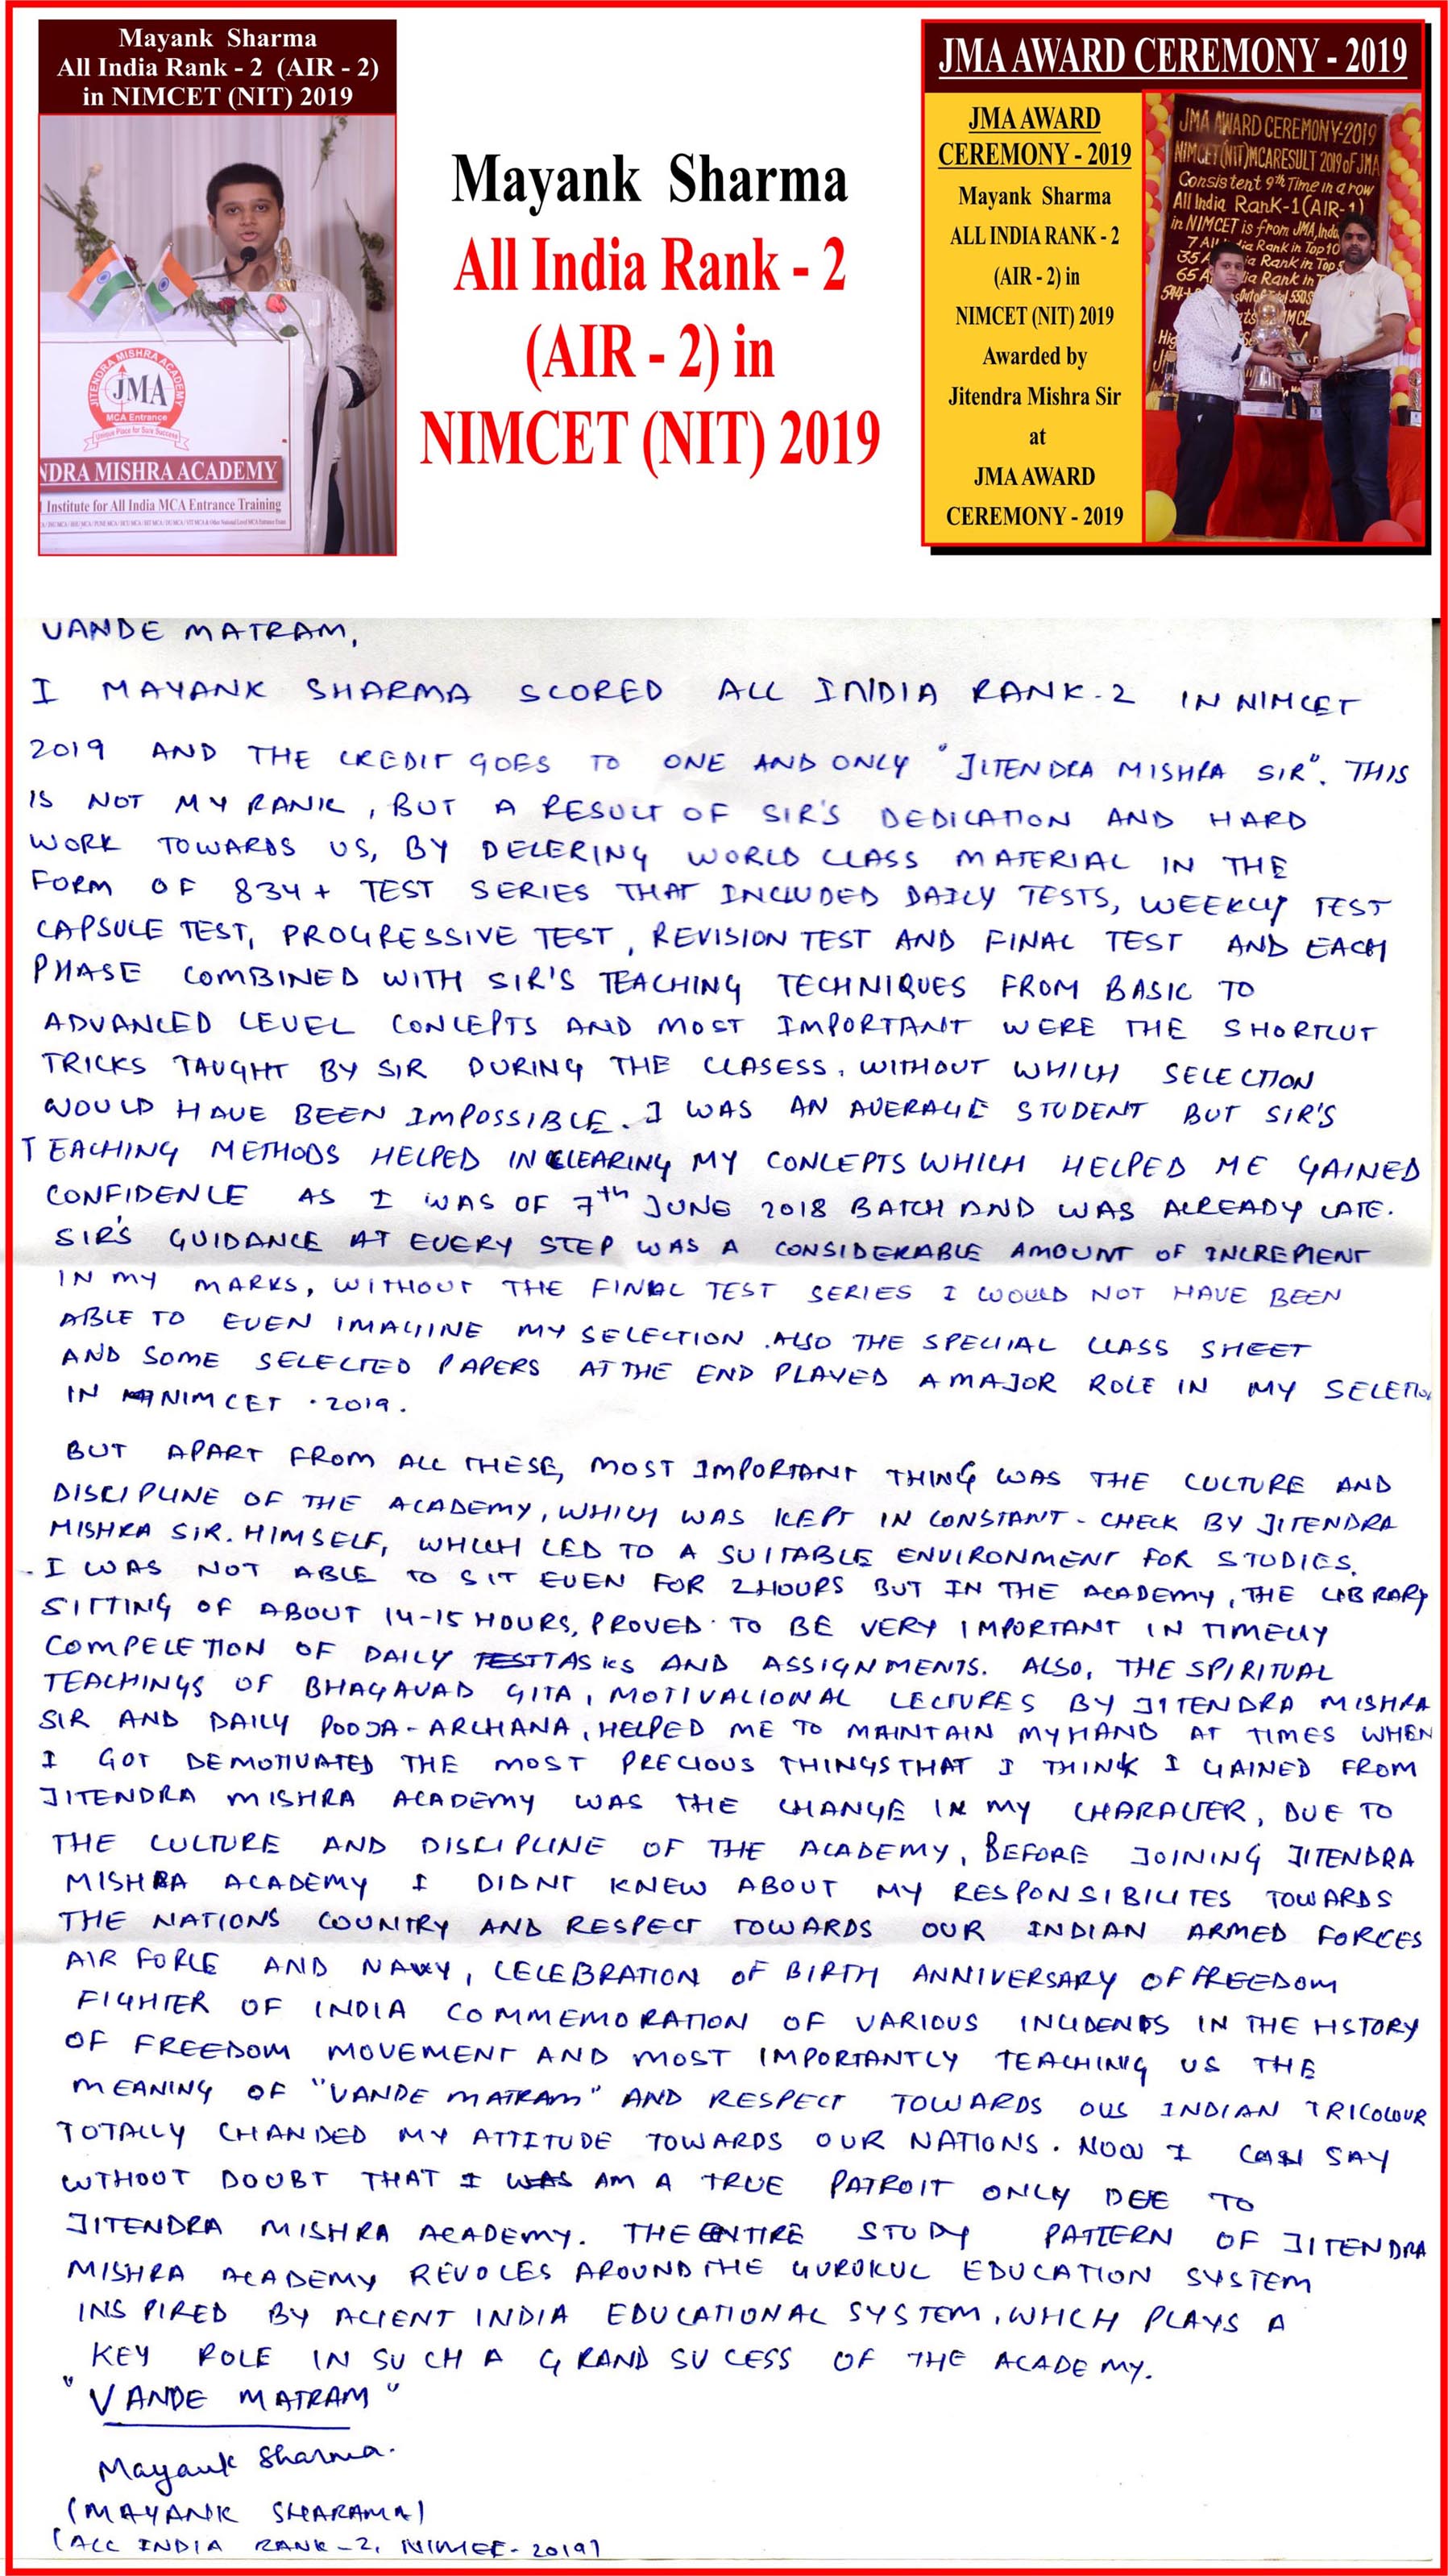 Mayank Sharma
All India Rank - 2 (AIR - 2)
in NIMCET (NIT) 2019
JITENDRA MISHRA ACADEMY
JMA
MCA Entrance
Unique Place for Sure Success
NDRA MISHRA ACADEMY
Institute for All India MCA Entrance Training
Mayank Sharma
All India Rank - 2
(AIR - 2) in
NIMCET (NIT) 2019
JMA AWARD CEREMONY - 2019
JMA AWARD
CEREMONY - 2019
Mayank Sharma
ALL INDIA RANK - 2
(AIR - 2) in
NIMCET (NIT) 2019
Awarded by
Jitendra Mishra Sir
at
JMA AWARD
CEREMONY - 2019
JMA AWARD CEREMONY-2019
NIMCET(NIT)MCA RESULT 2019 of JMA
Consistent 9th Time in a row
All India Rank-1 (AIR-1)
in NIMCET is from JMA, Indo
7 All dia Rank in Top 10
35 A ia Rank in Top 5
65 A ia Rank in T
VANDE MATRAM,
I MAYANK SHARMA SCORED ALL INDIA RANK-2 IN NIMCET
2019 AND THE CREDIT GOES TO ONE AND ONLY "JITENDRA MISHRA SIR". THIS
IS NOT MY RANK, BUT A RESULT OF SIR'S DEDICATION AND HARD
WORK TOWARDS US, BY DELERING WORLD CLASS MATERIAL IN THE
FORM OF 834+ TEST SERIES THAT INCLUDED DAILY TESTS, WEEKLY TEST
CAPSULE TEST, PROGRESSIVE TEST, REVISION TEST AND FINAL TEST AND EACH
PHASE COMBINED WITH SIR'S TEACHING TECHNIQUES FROM BASIC TO
ADVANCED LEVEL CONCEPTS AND MOST IMPORTANT WERE THE SHORTCUT
TRICKS TAUGHT BY SIR DURING THE CLASESS. WITHOUT WHICH SELECTION
WOULD HAVE BEEN IMPOSSIBLE. I WAS AN AVERAGE STUDENT BUT SIR'S
TEACHING METHODS HELPED IN CLEARING MY CONCEPTS WHICH HELPED ME GAINED
CONFIDENCE AS I WAS OF 7th JUNE 2018 BATCH AND WAS ALREADY LATE.
SIR'S GUIDANCE AT EVERY STEP WAS A CONSIDERABLE AMOUNT OF INCREMENT
IN MY MARKS, WITHOUT THE FINAL TEST SERIES I WOULD NOT HAVE BEEN
ABLE TO EVEN IMAGINE MY SELECTION. ALSO THE SPECIAL CLASS SHEET
AND SOME SELECTED PAPERS AT THE END PLAYED A MAJOR ROLE IN MY SELETION
IN NIMCET . 2019.
BUT APART FROM ALL THESE, MOST IMPORTANT THING WAS THE CULTURE AND
DISCIPLINE OF THE ACADEMY, WHICH WAS KEPT IN CONSTANT - CHECK BY JITENDRA
MISHRA SIR. HIMSELF, WHICH LED TO A SUITABLE ENVIRONMENT FOR STUDIES.
I WAS NOT ABLE TO SIT EVEN FOR 2 HOURS BUT IN THE ACADEMY, THE LIBRARY
SITTING OF ABOUT 14-15 HOURS, PROVED TO BE VERY IMPORTANT IN TIMELY
COMPELETION OF DAILY TEST TASKS AND ASSIGNMENTS. ALSO, THE SPIRITUAL
TEACHINGS OF BHAGAVAD GITA, MOTIVALIONAL LECTURES BY JITENDRA MISHRA
SIR AND DAILY POOJA-ARCHANA, HELPED ME TO MAINTAIN MY HAND AT TIMES WHEN
I GOT DEMOTIVATED THE MOST PRECIOUS THINGS THAT I THINK I GAINED FROM
JITENDRA MISHRA ACADEMY WAS THE CHANGE IN MY CHARACTER, DUE TO
THE CULTURE AND DISCIPLINE OF THE ACADEMY, BEFORE JOINING JITENDRA
MISHRA ACADEMY I DIDNT KNEW ABOUT MY RESPONSIBILITES TOWARDS
THE NATIONS COUNTRY AND RESPECT TOWARDS OUR INDIAN ARMED FORCES
AIR FORCE AND NAVY, CELEBRATION OF BIRTH ANNIVERSARY OF FREEDOM
FIGHTER OF INDIA COMMEMORATION OF VARIOUS INCIDENTS IN THE HSTORY
OF FREEDOM MOVEMENT AND MOST IMPORTANTLY TEACHING US THE
MEANING OF "VANDE MATRAM" AND RESPECT TOWARDS OUR INDIAN TRICOLOUR
TOTALLY CHANDED MY ATTITUDE TOWARDS OUR NATIONS. NOW I CAN SAY
WTHOUT DOUBT THAT I WAS AM A TRUE PATROIT ONLY DEE TO
JITENDRA MISHRA ACADEMY. THE ENTIRE STUDY PATTERN OF JITENDRA
MISHRA ACADEMY REVOLES AROUND THE GURUKUL EDUCATION SYSTEM
INSPIRED BY ACIENT INDIA EDUCATIONAL SYSTEM, WHCH PLAYS A
KEY ROLE IN SUCH A GRAND SUCESS OF THE ACADEMY.
"VANDE MATRAM"
Mayank Sharma.
(MAYANK SHARAMA)
(ALL INDIA RANK-2, NIMCET-2019)